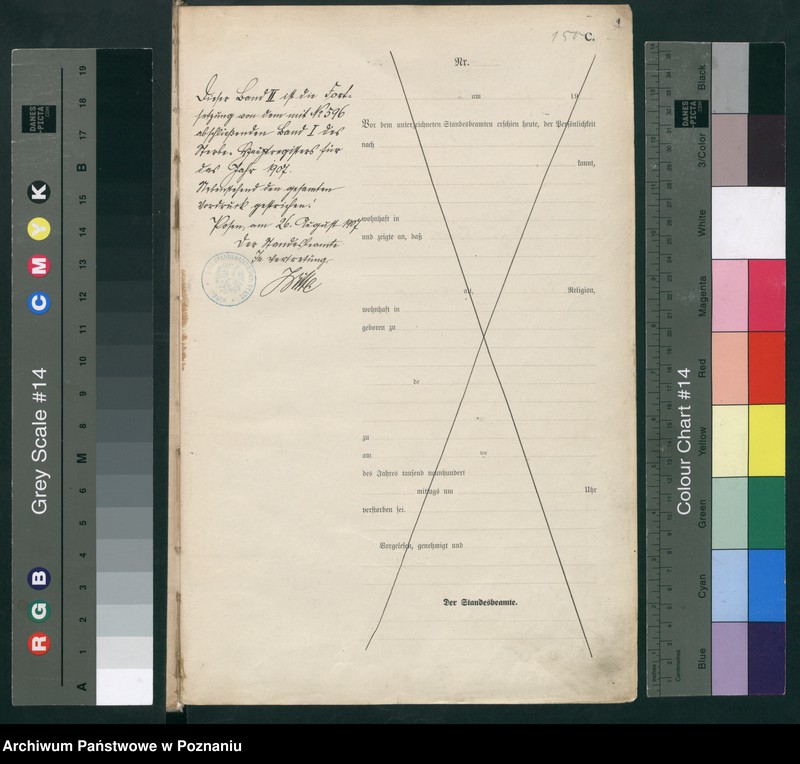 150 C.
Nr.
Dieser Band II ist die Fort-
setzung von dem mit No 596
abschließenden Band I des
Sterbe-Hauptregisters für
das Jahr 1907.
Nebenstehend den gesamten
Vordruck gestrichen!
Posen, am 26. August 1907
Der Standesbeamte
In Vertretung
am 19
Vor dem unterzeichneten Standesbeamten erschien heute, der Persönlichkeit
nach
kannt,
wohnhaft in
und zeigte an, daß
alt, Religion,
wohnhaft in
geboren zu
de
zu
am
des Jahres tausend neunhundert
mittags um Uhr
verstorben sei.
Vorgelesen, genehmigt und
Der Standesbeamte.
DANES
-PICTA
.COM
Grey Scale #14
R G B
C M Y K
A 1 2 3 4 5 6 M 8 9 10 11 12 13 14 15 B 17 18 19
DANES
-PICTA
.COM
Colour Chart #14
Blue Cyan Green Yellow Red Magenta White 3/Color Black
Inches
Centimetres
Archiwum Państwowe w Poznaniu